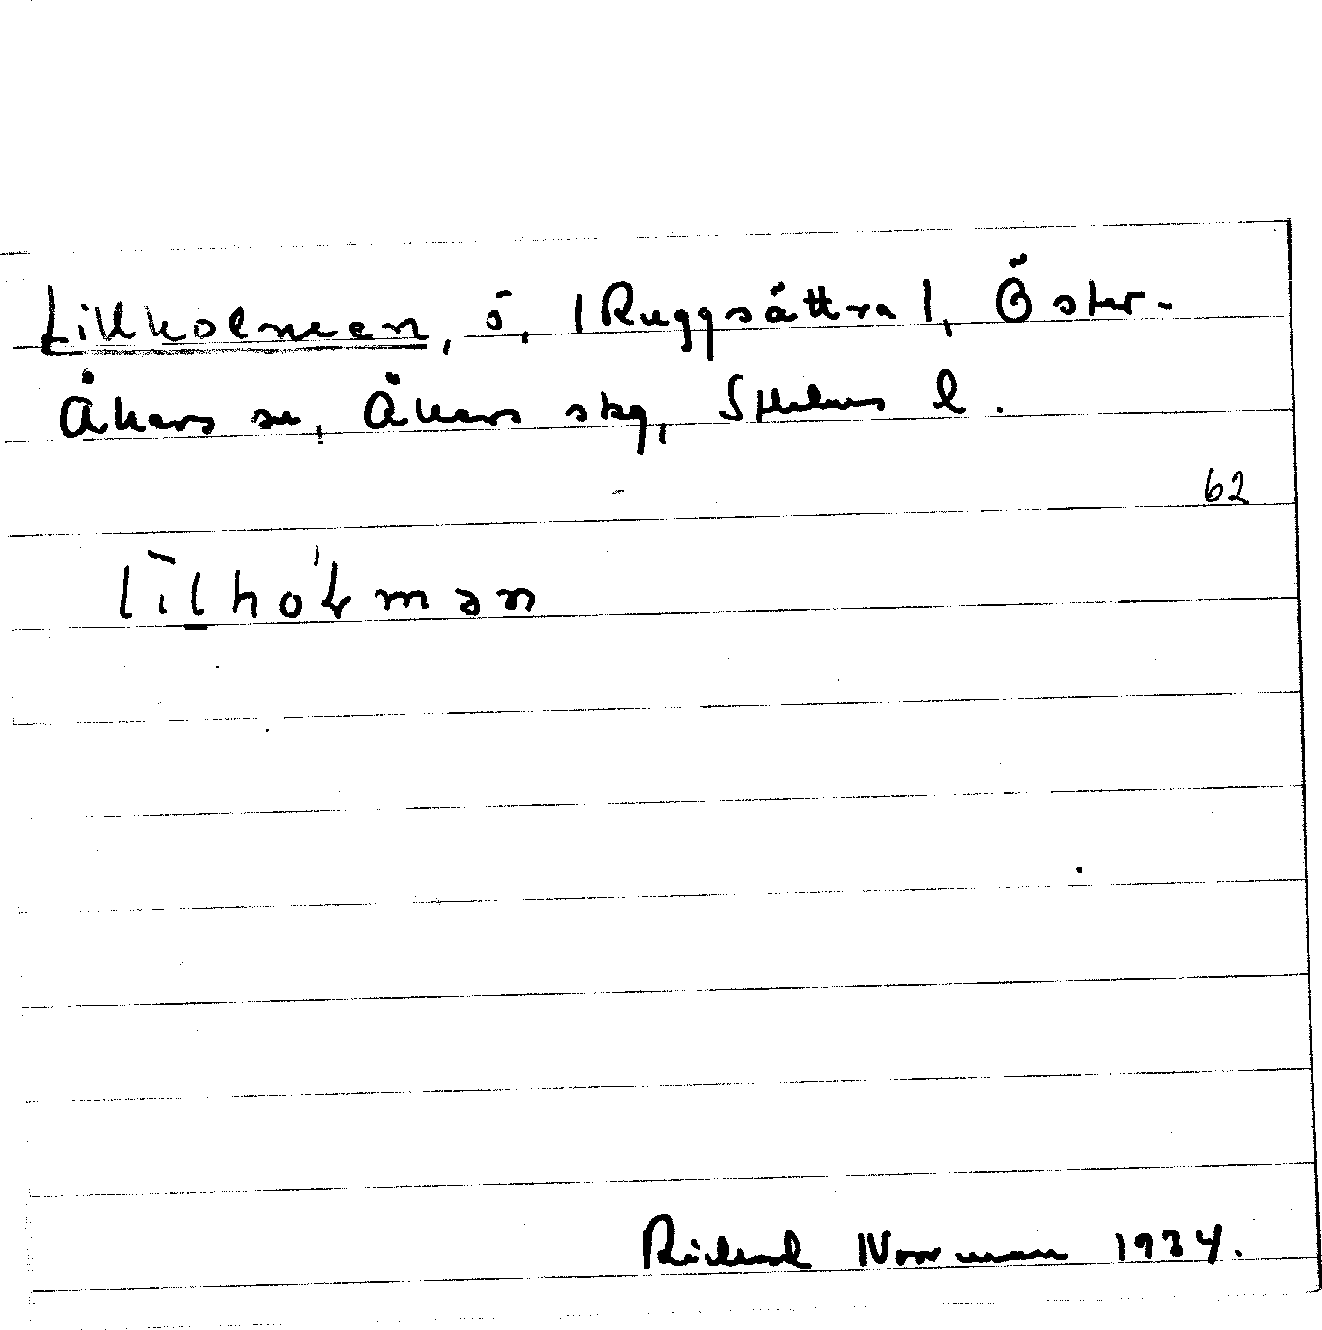 Lillholmen, ö, |Ruggsättra|, Öster-
Åkers sn, Åkers skg, Sthlms l.
62
līlhoʹɫmən
Rickard Norrman 1934.